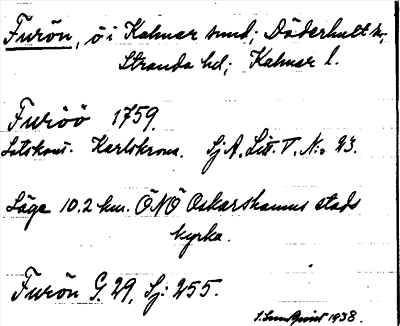 Furön, ö i Kalmar sund; Döderhult s,
Stranda hd; Kalmar l.
Furöö 1759.
Lotskont. Karlskrona. SjA. Litt. T. N:o 23.
Läge 10.2 km. ÖNÖ Oskarshamns stads
kyrka.
Furön G. 29, Sj: 255.
1938.